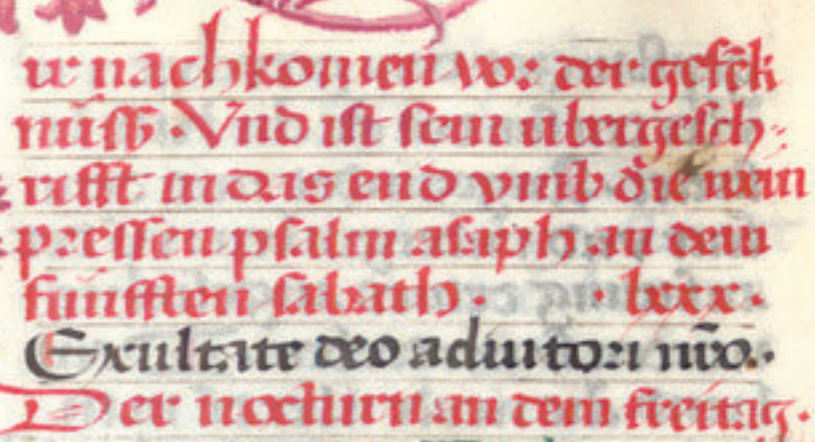 ir nachkomen vor der gefēk
nüss . Vnd ist sein ubergesch:
rifft in das end vmb die wein
pressen psalm asaph an dem
funfften sabath . . lxxx .
Exultate deo adiutori nr̄o .
Der nocturn an dem freitag .